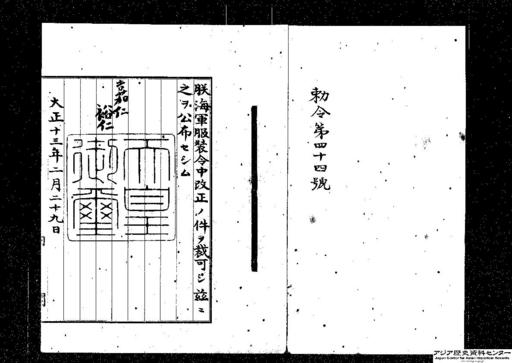 勅令第四十四號
朕海軍服装令中改正ノ件ヲ裁可シ茲ニ
之ヲ公布セシム
嘉仁
裕仁
天皇
御璽
大正十三年二月二十九日
アジア歴史資料センター
Japan Center for Asian Historical Records